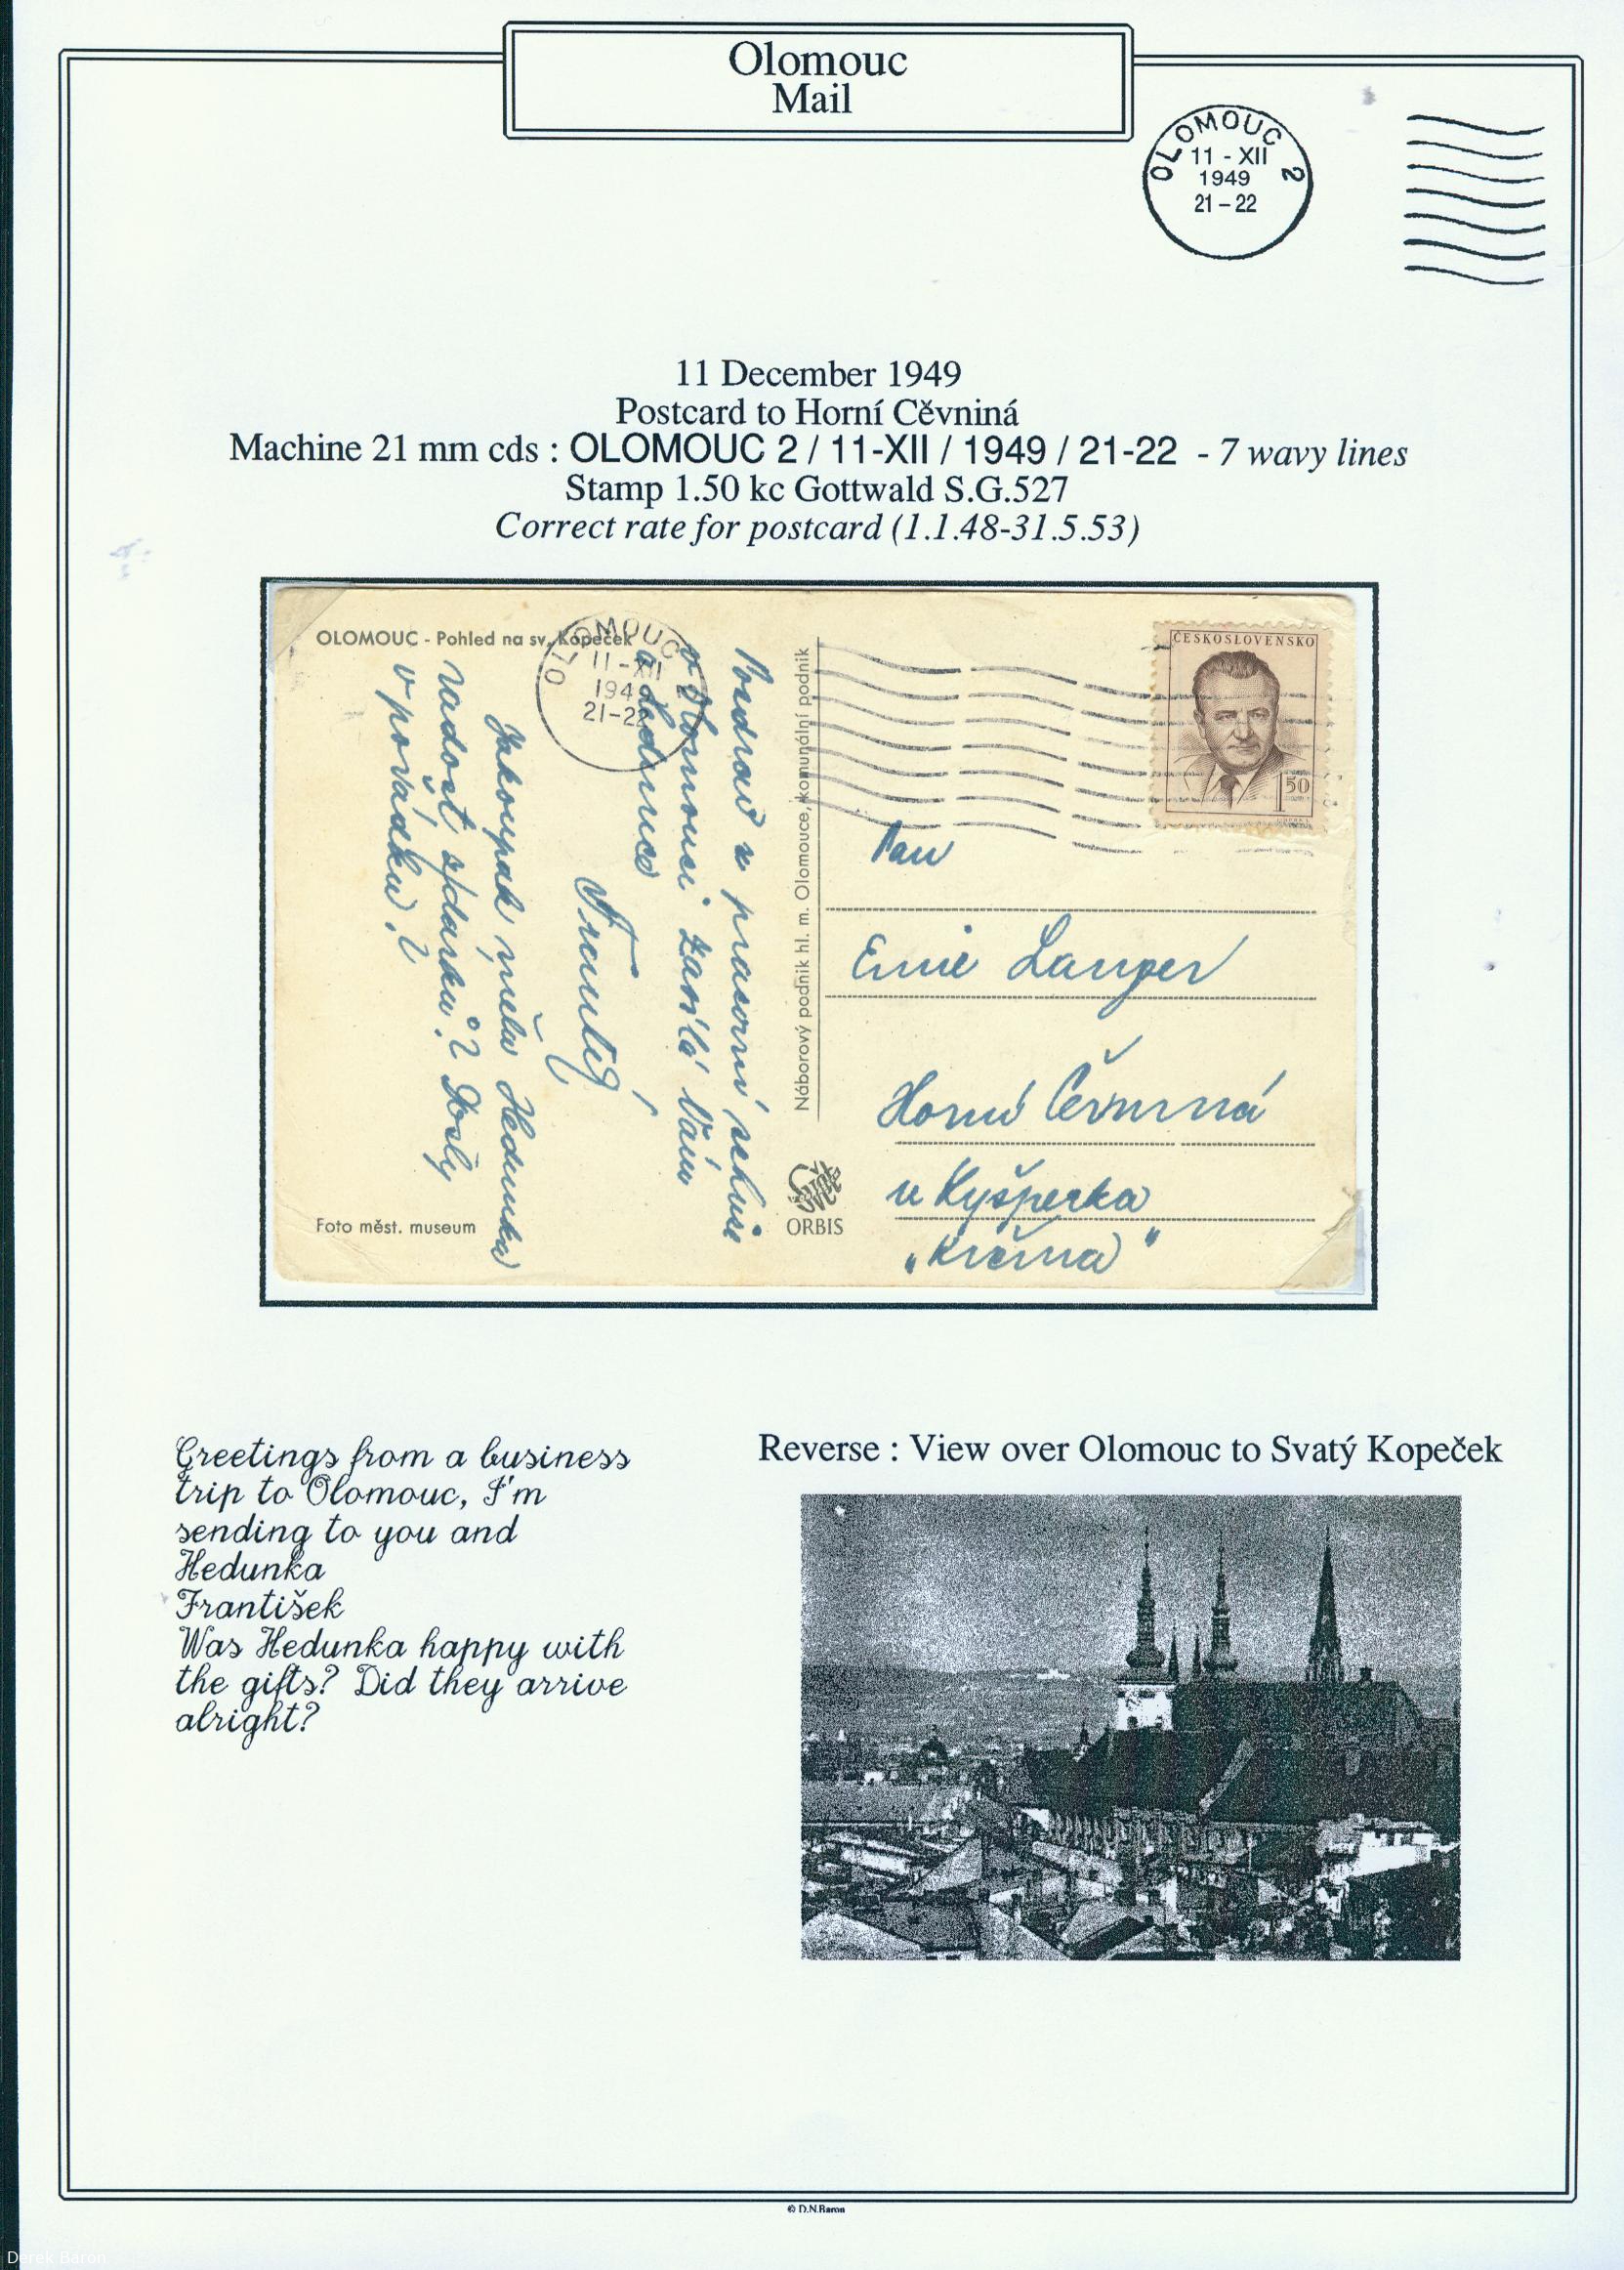 Olomouc
Mail
OLOMOUC 2
11 - XII
1949
21 - 22
11 December 1949
Postcard to Horní Cěvniná
Machine 21 mm cds : OLOMOUC 2 / 11-XII / 1949 / 21-22 - 7 wavy lines
Stamp 1.50 kc Gottwald S.G.527
Correct rate for postcard (1.1.48-31.5.53)
OLOMOUC - Pohled na sv. Kopeček
OLOMOUC
11-XII
194
21-22
Pozdrav z pracovní schůze
v Olomouci zasílá Vám
a
Jakoupak měla Hedunka
radost z dárků? Došly
v pořádku?
Foto měst. museum
Náborový podnik hl. m. Olomouce, komunální podnik
ORBIS
ČESKOSLOVENSKO
1 50
Pan
Langer
Horní Čermná
u Kyšperka
„Krčma"
Greetings from a business
trip to Olomouc, I'm
sending to you and
Hedunka
František
Was Hedunka happy with
the gifts? Did they arrive
alright?
Reverse : View over Olomouc to Svatý Kopeček
© D.N.Baron
Derek Baron